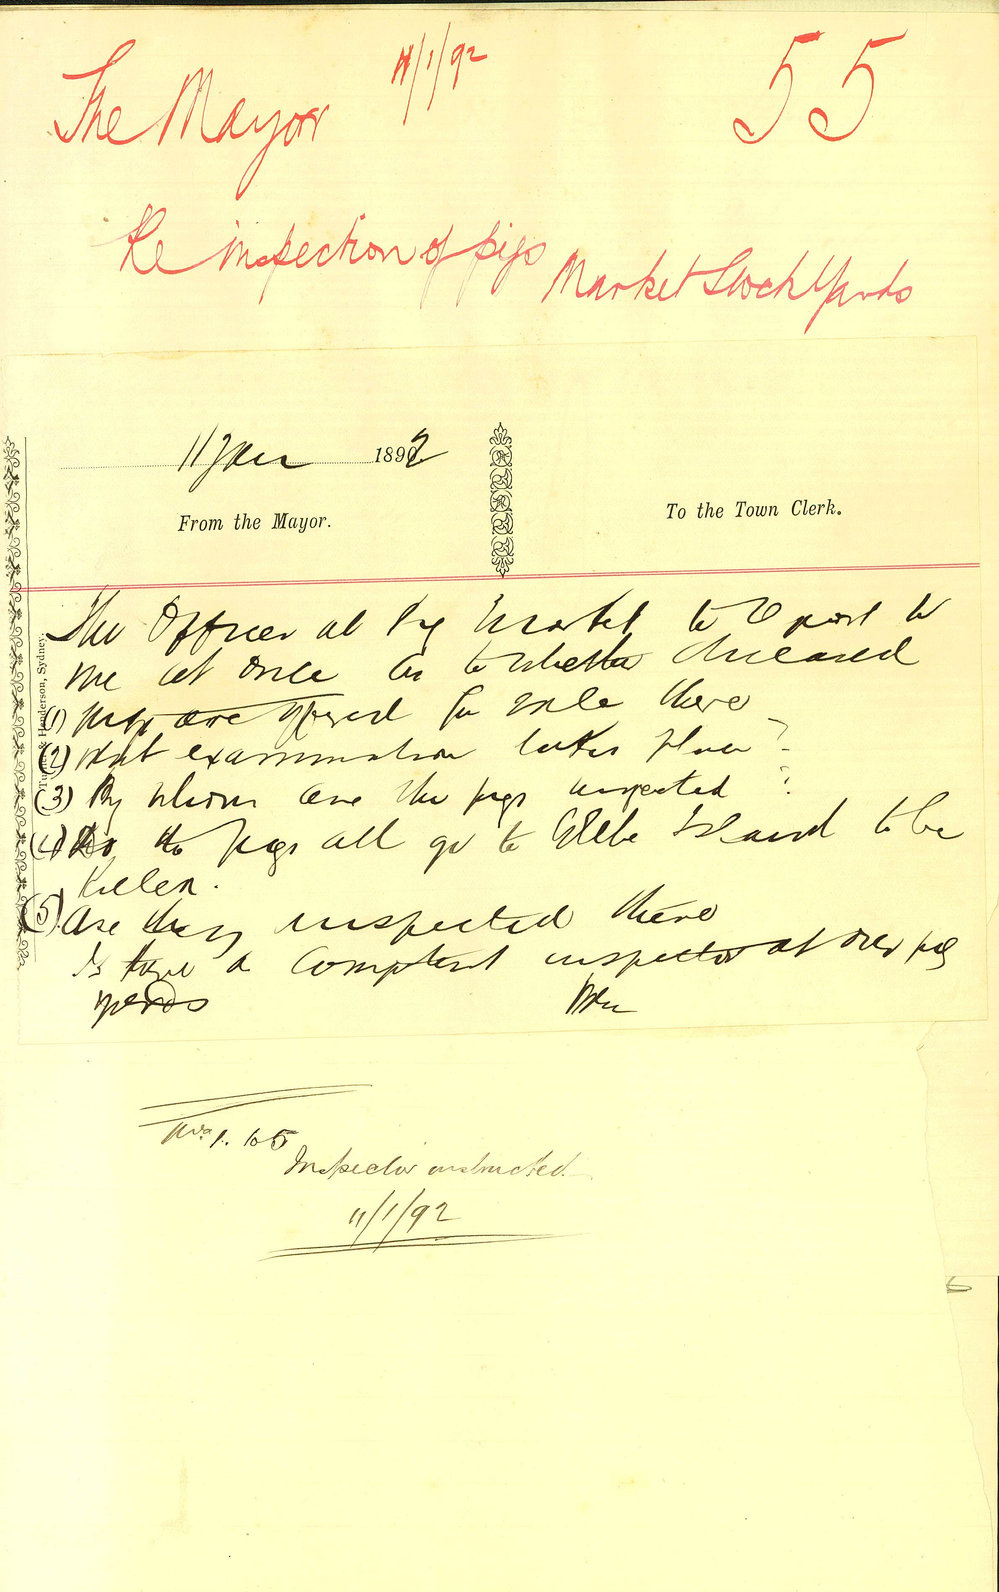 The Mayor 11/1/92 55
Re inspection of pigs Market Stock Yards
11 Jan 1892
From the Mayor.
To the Town Clerk.
The Officer at Pig Market to report to
me at once as to whether diseased
(1) pigs are offered for sale there
(2) What examination takes place?
(3) By whom are the pigs inspected?
(4) Do the pigs all go to Glebe Island to be
killed.
(5) Are they inspected there
Is there a competent inspector at our pig
yards
Turner & Henderson, Sydney.
Inspector instructed
11/1/92